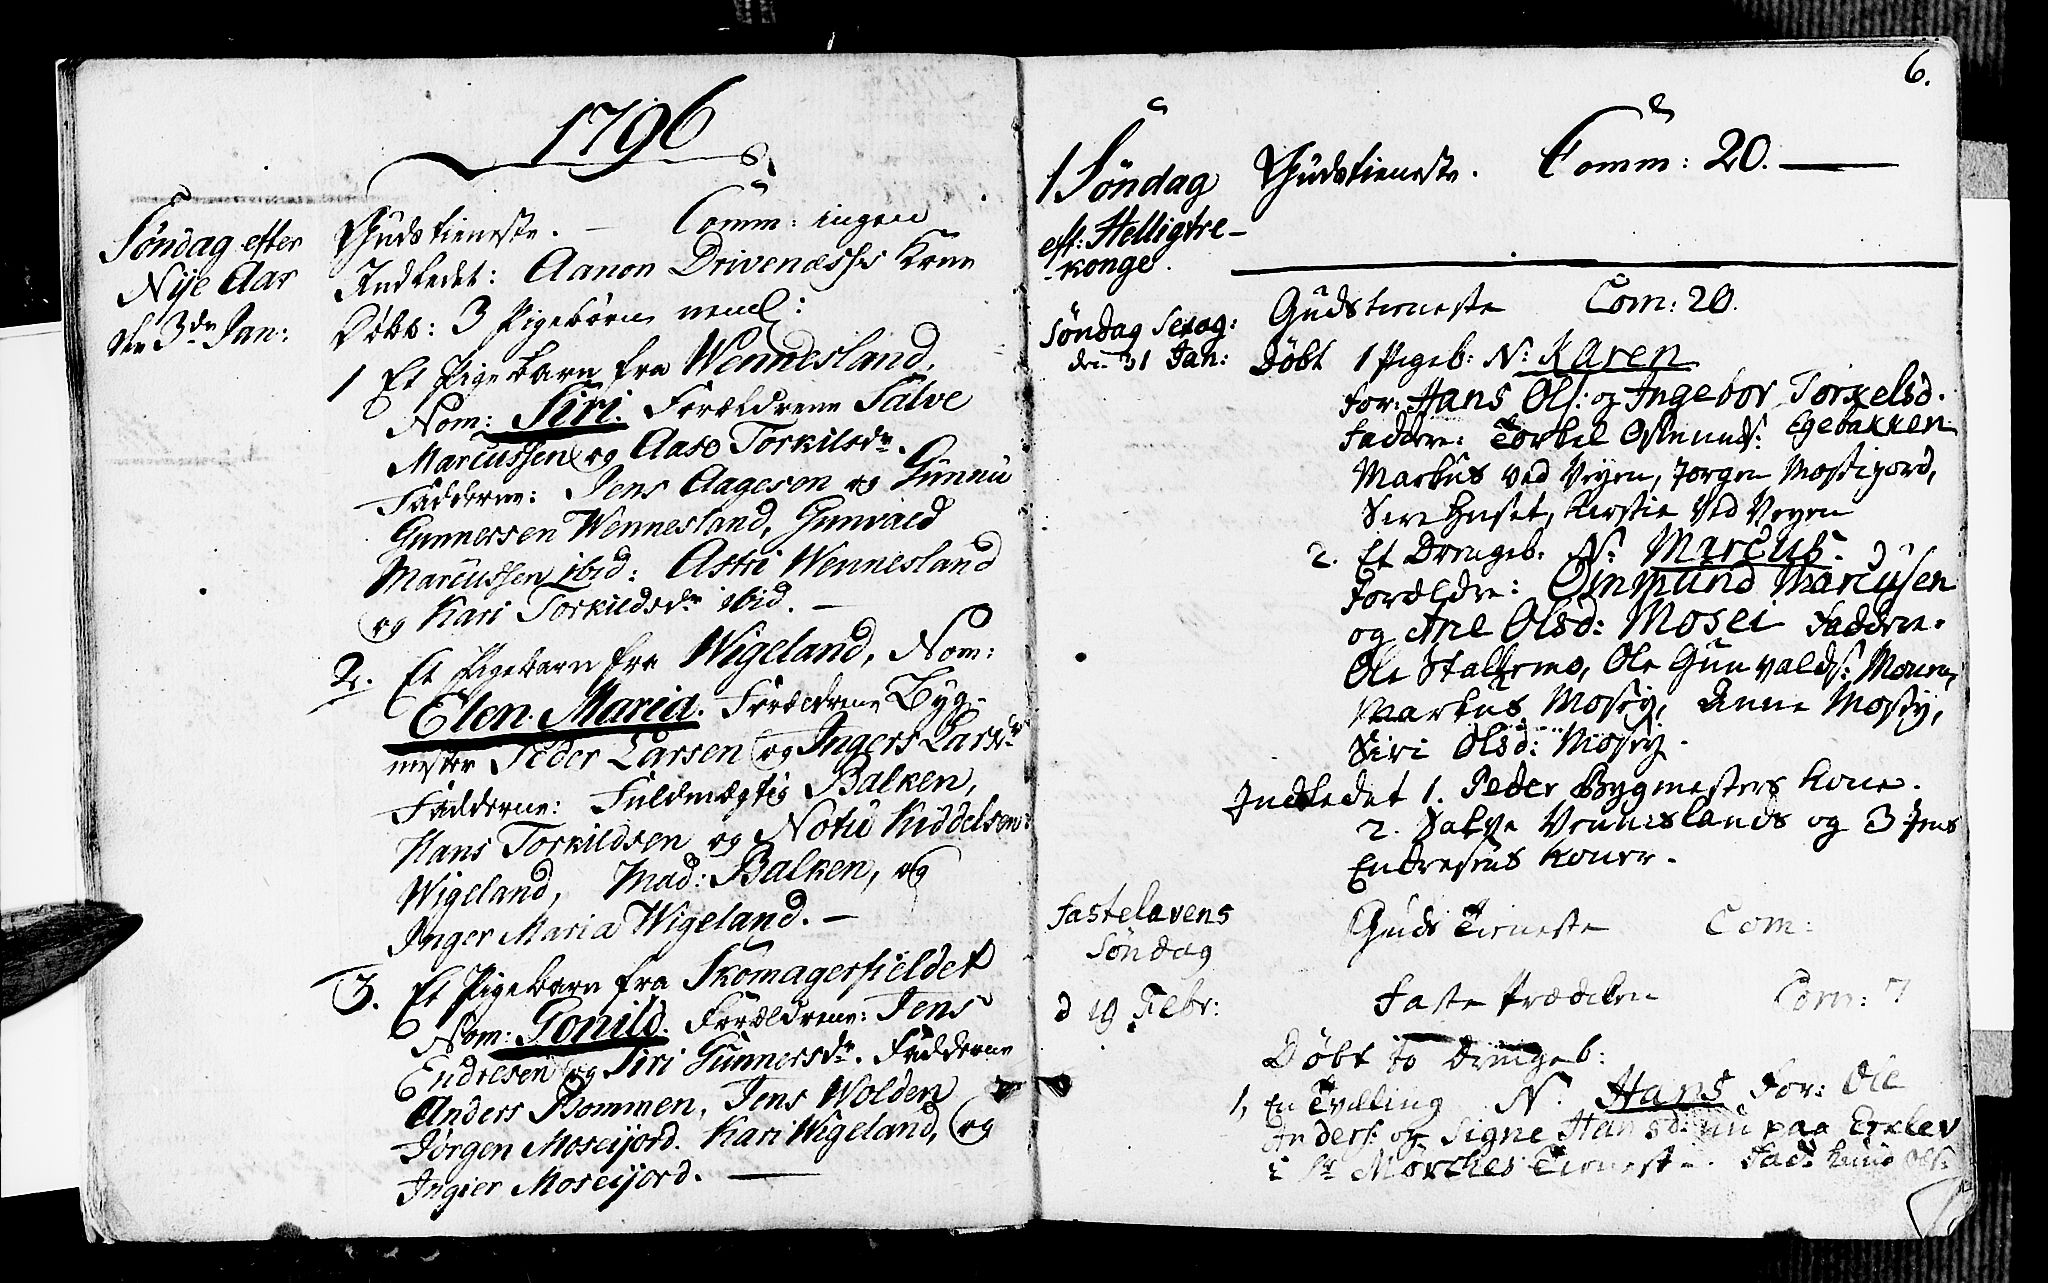 1796
Søndag efter
Nÿe Aar
den 3de Jan:
Gudstieneste. — Comm: ingen
Indledet: Aanon Drivenæsses Kone
Døbt: 3 Pigebørn neml:
1 Et Pigebarn fra Wennesland,
Nom: Siri. Forældrene Salve
Marcussen og Aase Torkilsdr.
Fadderne: Jens Aagesen og Gunnu
Gunnersen Wennesland, Gunvald
Marcussen ibid: Astri Wennesland
og Kari Torkildsdr ibid. —
2. Et Pigebarn fra Wigeland, Nom:
Elen Maria. Forældrene Byg-
mester Peder Larsen og Ingers Larsdr
Fadderne: Fuldmægtig Balken,
Hans Torkildsen og Notu Kiddelsen
Wigeland, Mad: Balken, og
Inger Maria Wigeland. —
3. Et Pigebarn fra Skomagerfieldet
Nom: Gonild. Forældrene: Jens
Endresen og Siri Gunnersdr. Fadderne
Anders Bommen, Jens Wolden
Jørgen Moseijord. Kari Wigeland, og
Ingier Moseijord. —
6.
1 Søndag
eft: Helligtre-
konge.
Gudstieneste. Comm: 20. —
Søndag Sexag:
den 31 Jan:
Gudstieneste Com: 20.
Døbt 1 Pigeb: N: Karen
For: Hans Ols: og Ingebor Torkelsd.
Faddere: Torkel Osmunds: Egebakken
Markus ved Veyen, Jorgen Mosejord,
Sire Huset, Kirstie ved Veyen
2. Et Drengeb: N: Marcus.
Forældre: Omund Marcusen
og Ane Olsd: Mosei Faddere.
Ole Stallemo, Ole Gunvalds: Moen,
Markus Mosey, Anne Mosey,
Siri Olsd: Mosey.
Indledet 1. Peder Bygmesters Kone.
2. Salve Venneslands og 3 Jens
Endresens Koner.
Fastelavens
Søndag
Guds Tieneste Com:
d 19 Febr:
Faste Prædiken Com: 7
Døbt to Drengeb:
1, En Tvilling N: Hans For: Ole
Anders: og Signe Hansd: nu paa
i Hr Mørches Tieneste. Fad: Knud Ols: